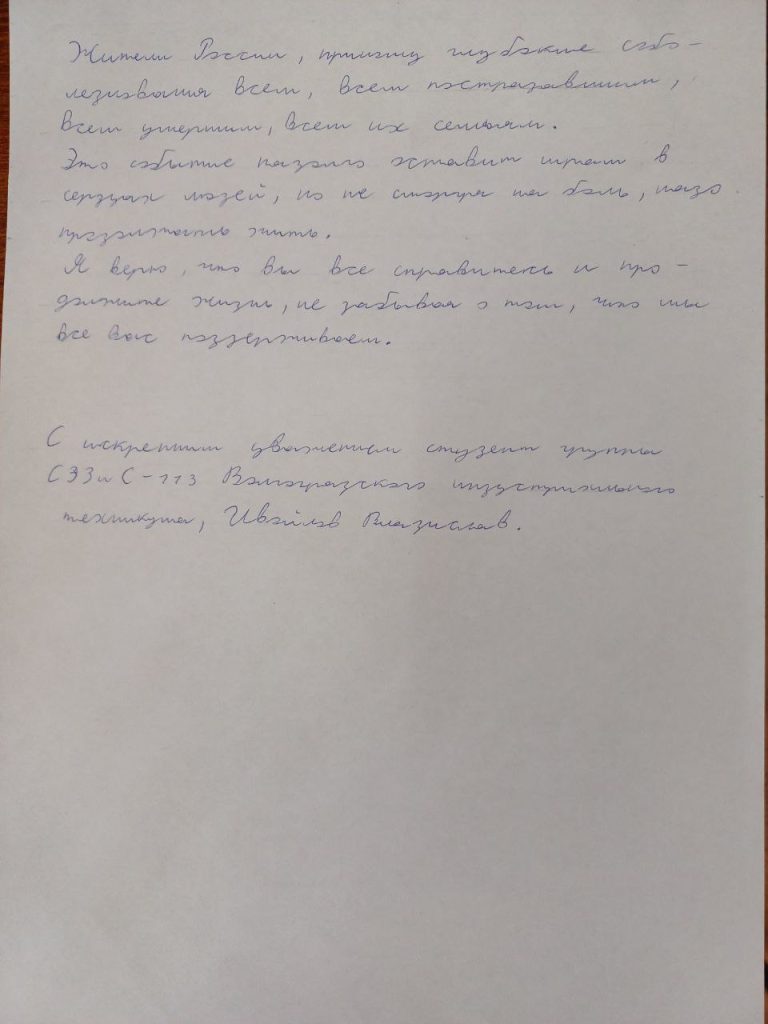 Жители России, приношу глубокие собо-
лезнования всем, всем пострадавшим,
всем умершим, всем их семьям.
Это событие надолго оставит шрам в
сердцах людей, но не смотря на боль, надо
продолжать жить.
Я верю, что вы все справитесь и про-
должите жизнь, не забывая о том, что мы
все вас поддерживаем.
С искренним уважением студент группы
СЭЗиС-113 Волгоградского индустриального
техникума, Владислав.